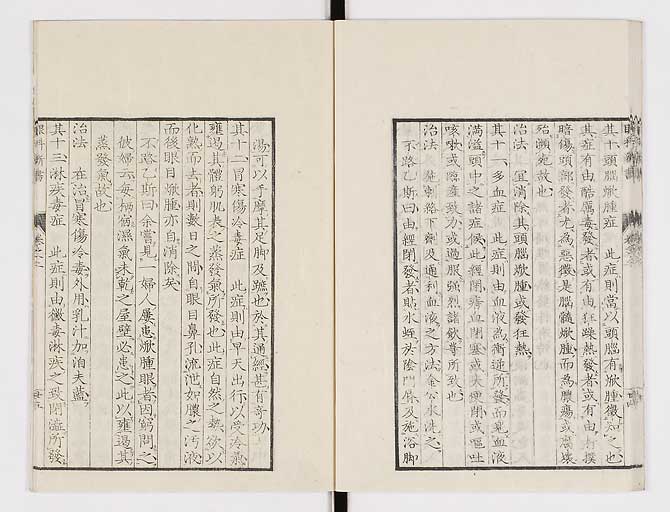 其十頭腦焮腫症 此症則當以頭腦有焮腫徵知之也
其症有由酷厲毒發者或有由狂躁熱發者或有由打撲
暗傷頭部發者尤為惡徵是腦髓焮腫而為膿瘍或腐壞
殆瀕死故也
治法 宜消除其頭腦焮腫或發狂熱
其十一多血症 此症則由血液為衝逆所發而走血液
滿溢頭中之諸症候此經閉痔血閉塞或大便閉或嘔吐
咳嗽或臨產致力或過服強烈諸飲等所致也
治法 施刺絡下劑及通利血液之方法金公水洗之
不路乙斯曰由經閉發者貼水蛭於陰門唇及施浴腳
湯可以手摩其足腳及蹠也於其通經甚有奇功
其十二冒寒傷冷毒症 此症則由早天出行以受冷氣
壅遏其體軀肌表之蒸發氣所發也此症自然之熱欲以
化熟而去者則數日之間自眼目鼻孔流泄如膿之污液
而後眼目焮腫亦自消除矣
不路乙斯曰余嘗見一婦人屢患焮腫眼者因窮問之
彼婦云每栖宿濕氣未乾之屋壁必患之此以壅遏其
蒸發氣故也
治法 在治冒寒傷冷毒外用乳汁加泊夫藍
其十三淋疾毒症 此症則由黴毒淋疾之致閉溢所發
眼科新書